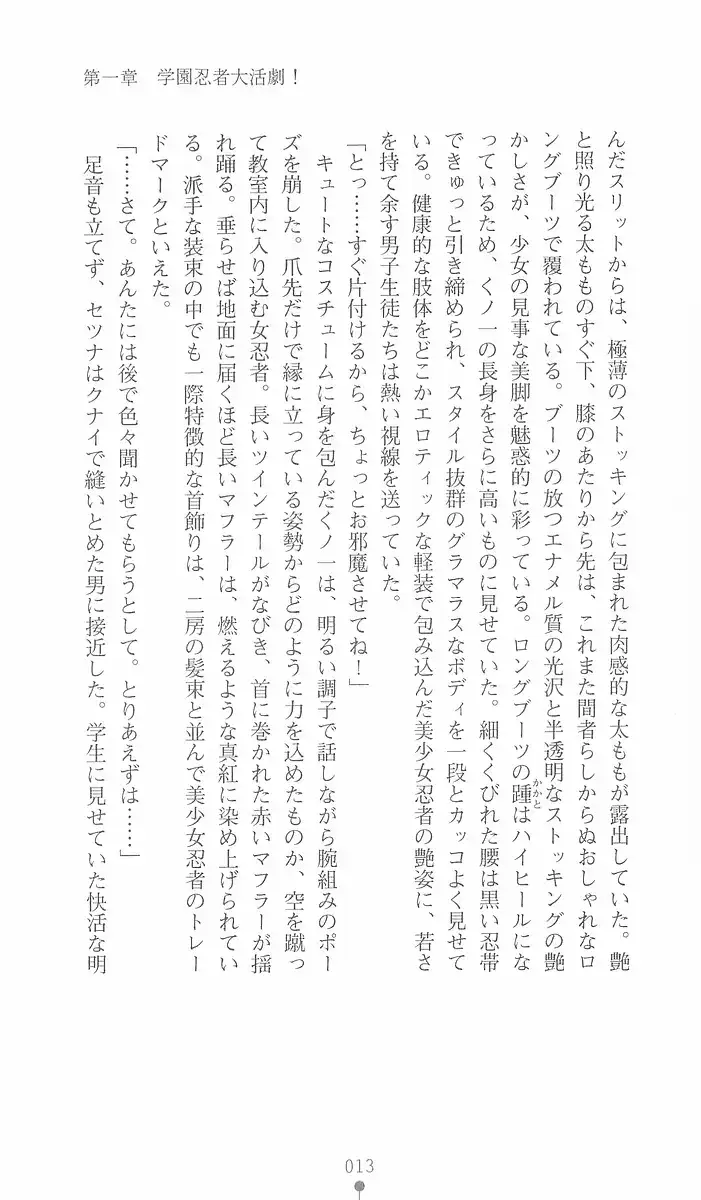 第一章　学園忍者大活劇！
んだスリットからは、極薄のストッキングに包まれた肉感的な太ももが露出していた。艶
と照り光る太もものすぐ下、膝のあたりから先は、これまた間者らしからぬおしゃれなロ
ングブーツで覆われている。ブーツの放つエナメル質の光沢と半透明なストッキングの艶
かしさが、少女の見事な美脚を魅惑的に彩っている。ロングブーツの踵はハイヒールにな
かかと
っているため、くノ一の長身をさらに高いものに見せていた。細くくびれた腰は黒い忍帯
できゅっと引き締められ、スタイル抜群のグラマラスなボディを一段とカッコよく見せて
いる。健康的な肢体をどこかエロティックな軽装で包み込んだ美少女忍者の艶姿に、若さ
を持て余す男子生徒たちは熱い視線を送っていた。
「とっ……すぐ片付けるから、ちょっとお邪魔させてね！」
　キュートなコスチュームに身を包んだくノ一は、明るい調子で話しながら腕組みのポー
ズを崩した。爪先だけで縁に立っている姿勢からどのように力を込めたものか、空を蹴っ
て教室内に入り込む女忍者。長いツインテールがなびき、首に巻かれた赤いマフラーが揺
れ踊る。垂らせば地面に届くほど長いマフラーは、燃えるような真紅に染め上げられてい
る。派手な装束の中でも一際特徴的な首飾りは、二房の髪束と並んで美少女忍者のトレー
ドマークといえた。
「……さて。あんたには後で色々聞かせてもらうとして。とりあえずは……」
　足音も立てず、セツナはクナイで縫いとめた男に接近した。学生に見せていた快活な明
013